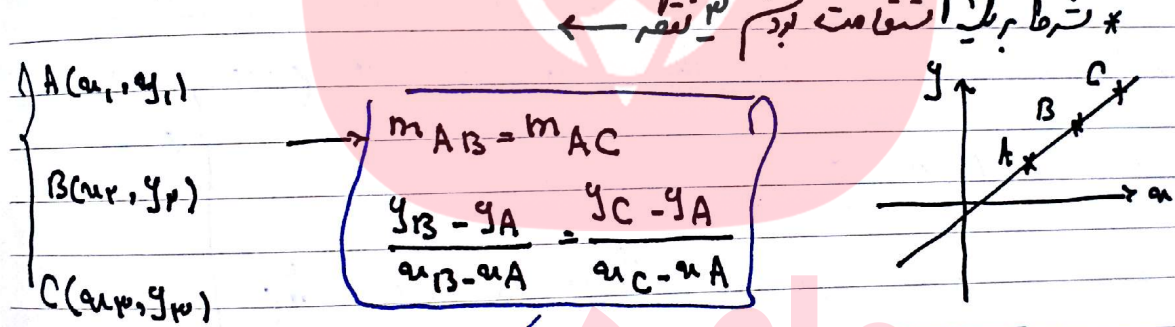 * شرط بر یک استقامت بودن ۳ نقطه ←
A(x₁, y₁)
B(x₂, y₂)
C(x₃, y₃)
m AB = m AC
(y_B - y_A)/(x_B - x_A) = (y_C - y_A)/(x_C - x_A)
y
C
B
A
x